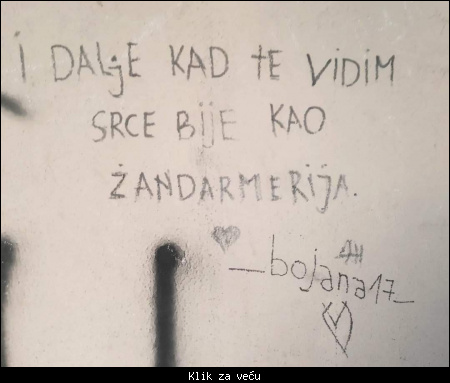 I DALjE KAD TE VIDIM
SRCE BIJE KAO
ŽANDARMERIjA.
_bojana17_
Klik za veću